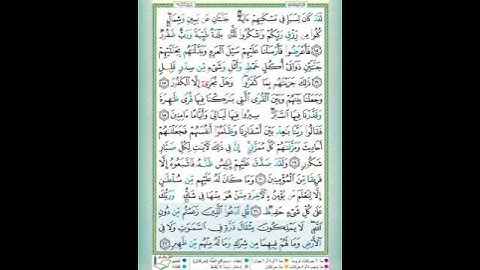 لَقَدْ كَانَ لِسَبَإٍ فِى مَسْكَنِهِمْ ءَايَةٌ جَنَّتَانِ عَن يَمِينٍ وَشِمَالٍ
كُلُوا۟ مِن رِّزْقِ رَبِّكُمْ وَٱشْكُرُوا۟ لَهُۥ بَلْدَةٌ طَيِّبَةٌ وَرَبٌّ غَفُورٌ
١٥ فَأَعْرَضُوا۟ فَأَرْسَلْنَا عَلَيْهِمْ سَيْلَ ٱلْعَرِمِ وَبَدَّلْنَٰهُم بِجَنَّتَيْهِمْ
جَنَّتَيْنِ ذَوَاتَىْ أُكُلٍ خَمْطٍ وَأَثْلٍ وَشَىْءٍ مِّن سِدْرٍ قَلِيلٍ
١٦ ذَٰلِكَ جَزَيْنَٰهُم بِمَا كَفَرُوا۟ وَهَلْ نُجَٰزِىٓ إِلَّا ٱلْكَفُورَ ١٧
وَجَعَلْنَا بَيْنَهُمْ وَبَيْنَ ٱلْقُرَى ٱلَّتِى بَٰرَكْنَا فِيهَا قُرًى ظَٰهِرَةً
وَقَدَّرْنَا فِيهَا ٱلسَّيْرَ سِيرُوا۟ فِيهَا لَيَالِىَ وَأَيَّامًا ءَامِنِينَ ١٨
فَقَالُوا۟ رَبَّنَا بَٰعِدْ بَيْنَ أَسْفَارِنَا وَظَلَمُوٓا۟ أَنفُسَهُمْ فَجَعَلْنَٰهُمْ
أَحَادِيثَ وَمَزَّقْنَٰهُمْ كُلَّ مُمَزَّقٍ إِنَّ فِى ذَٰلِكَ لَءَايَٰتٍ لِّكُلِّ صَبَّارٍ
شَكُورٍ ١٩ وَلَقَدْ صَدَّقَ عَلَيْهِمْ إِبْلِيسُ ظَنَّهُۥ فَٱتَّبَعُوهُ إِلَّا
فَرِيقًا مِّنَ ٱلْمُؤْمِنِينَ ٢٠ وَمَا كَانَ لَهُۥ عَلَيْهِم مِّن سُلْطَٰنٍ
إِلَّا لِنَعْلَمَ مَن يُؤْمِنُ بِٱلْءَاخِرَةِ مِمَّنْ هُوَ مِنْهَا فِى شَكٍّ وَرَبُّكَ
عَلَىٰ كُلِّ شَىْءٍ حَفِيظٌ ٢١ قُلِ ٱدْعُوا۟ ٱلَّذِينَ زَعَمْتُم مِّن دُونِ
ٱللَّهِ لَا يَمْلِكُونَ مِثْقَالَ ذَرَّةٍ فِى ٱلسَّمَٰوَٰتِ وَلَا فِى
ٱلْأَرْضِ وَمَا لَهُمْ فِيهِمَا مِن شِرْكٍ وَمَا لَهُۥ مِنْهُم مِّن ظَهِيرٍ ٢٢